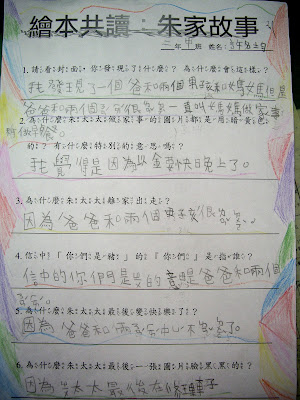 繪本共讀：朱家故事
三年甲班 姓名：
1.請看封面，你發現了什麼？為什麼會這樣？
我發現了一個爸爸和兩個男孩和媽媽但是
爸爸和兩個
一直叫媽媽做家事
2.為什麼朱太太做家事的圖片都是用暗黃色
的？有什麼特別的意思嗎？
我覺得是因為 快日晚上了。
3.為什麼朱太太離家出走？
因為爸爸和兩個男孩很
4.信中「你們是豬」的「你們」是指誰？
信中的你們是 的意思是爸爸和兩個
5.為什麼朱太太最後變快樂了？
因為爸爸和兩
6.為什麼朱太太最後一張圖片臉黑黑的？
因為朱太太最後在修理車子